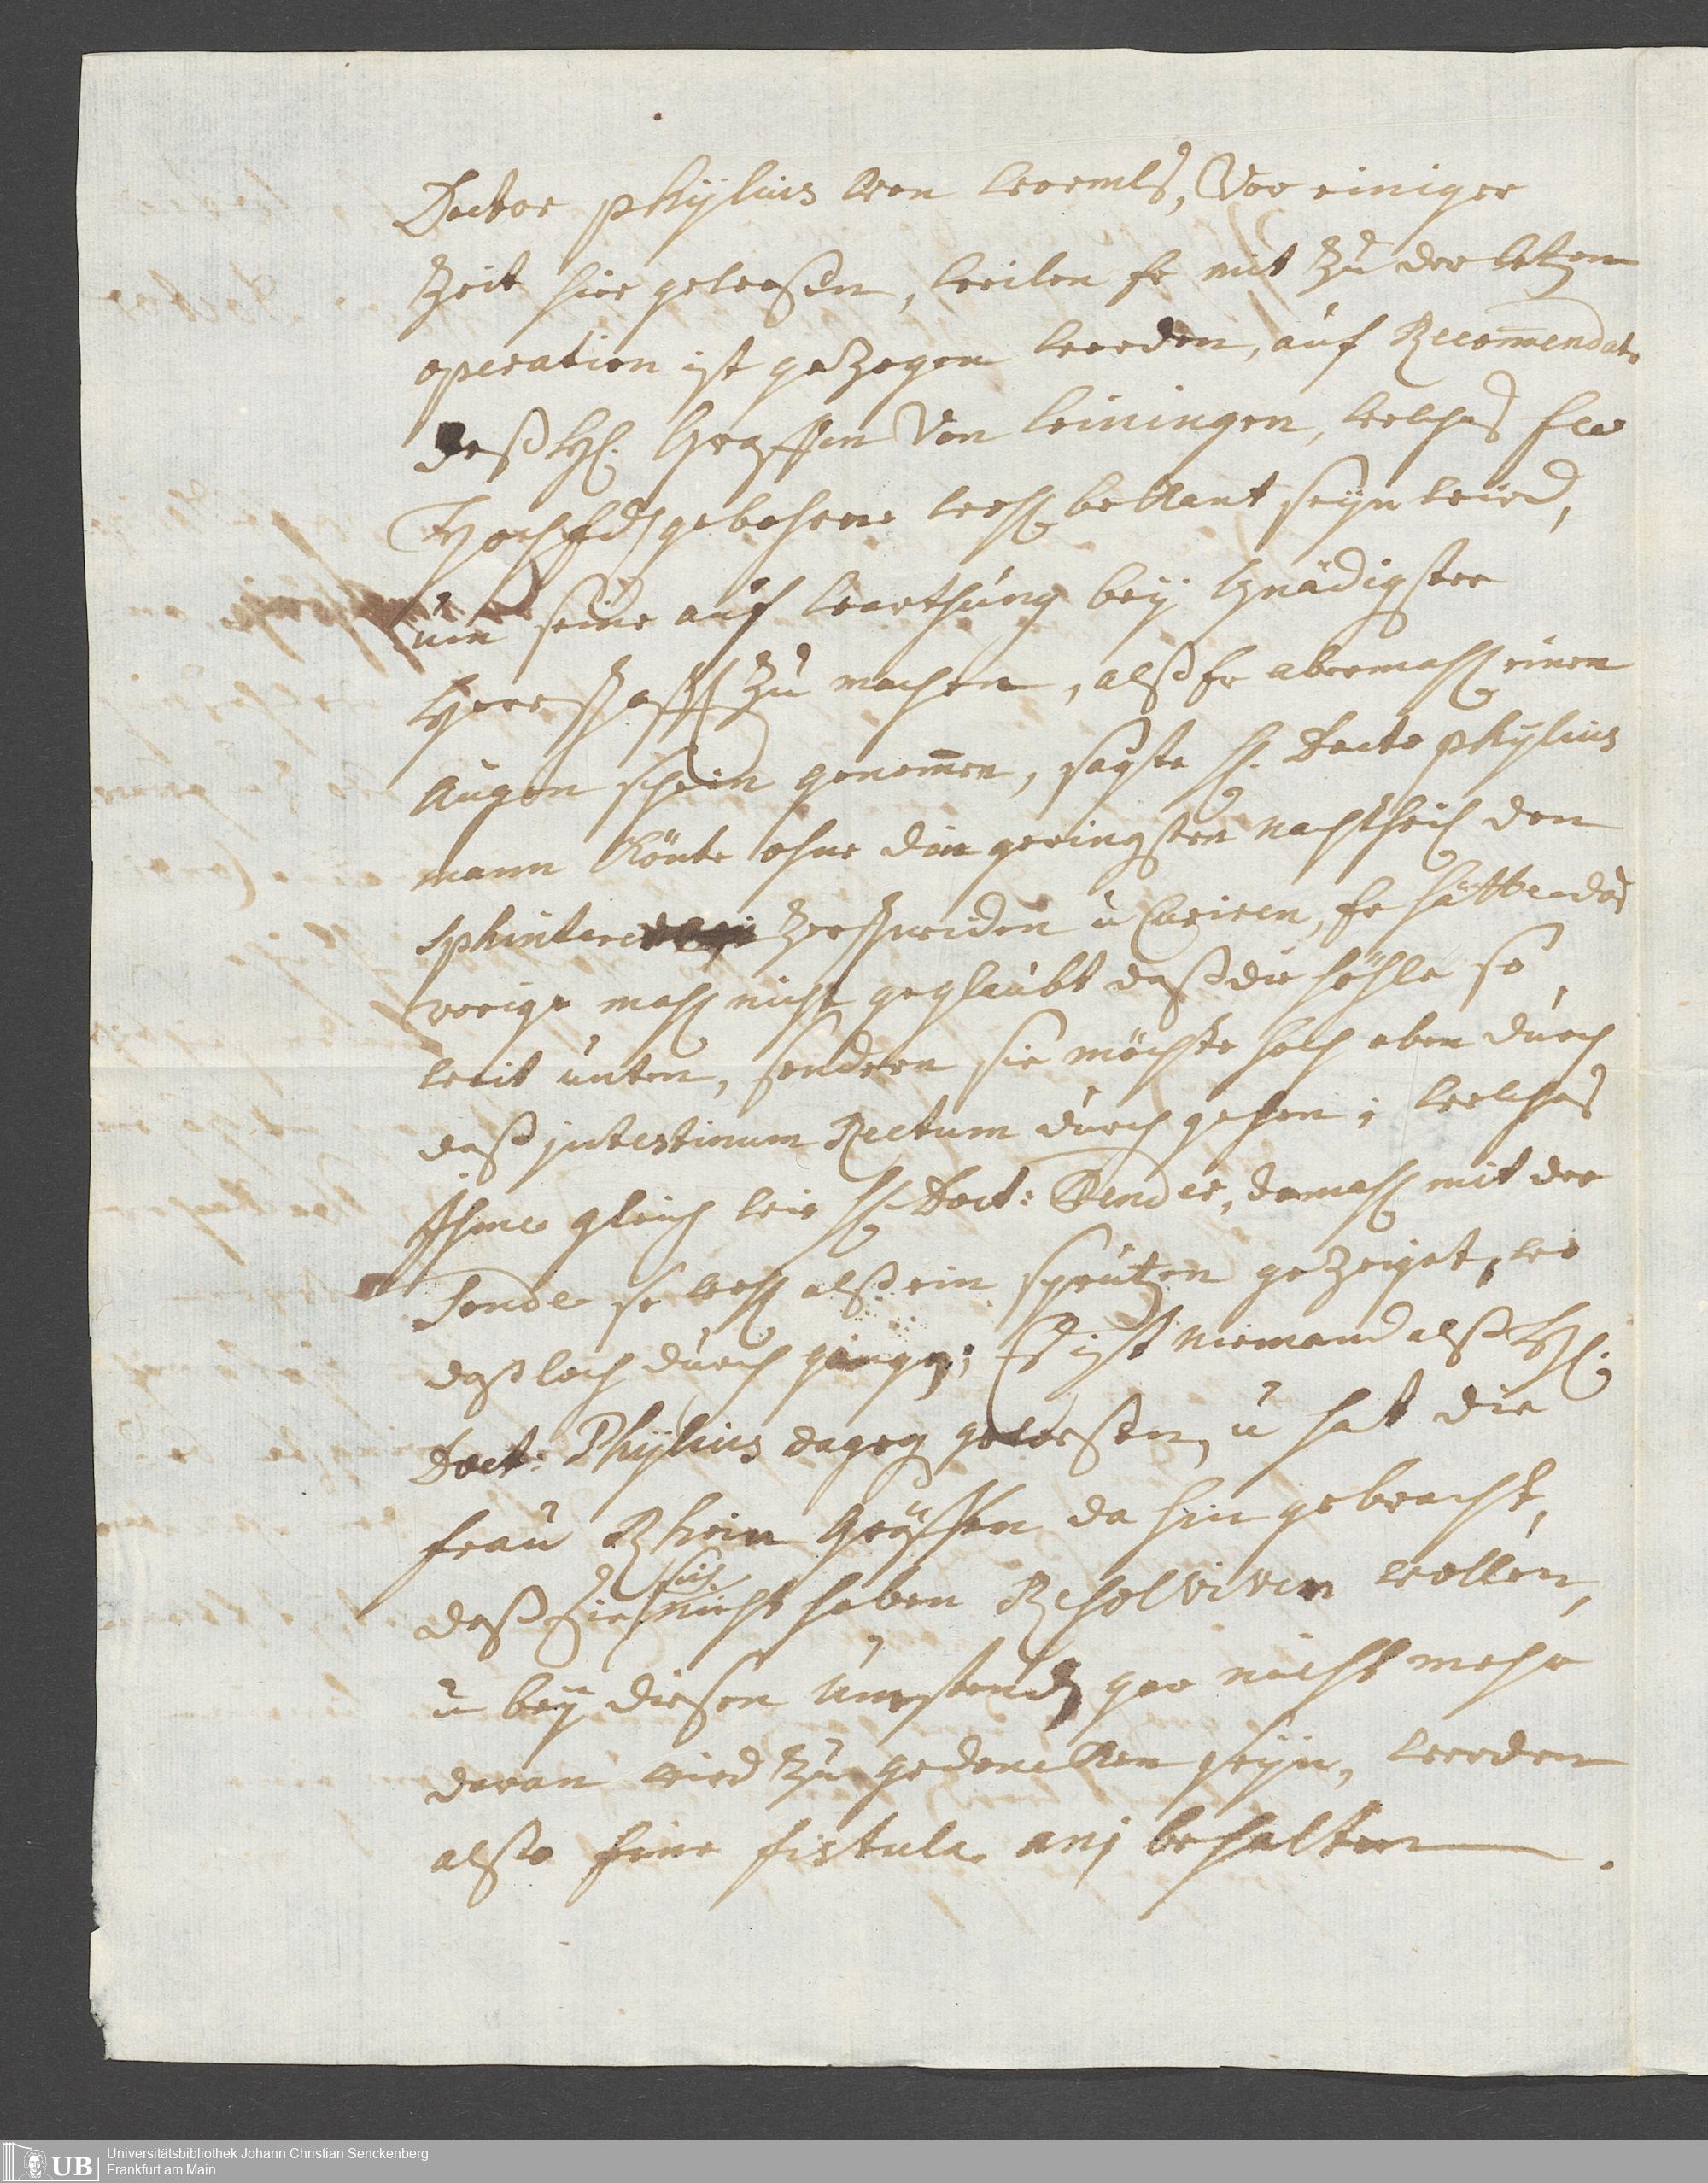 Doctor phÿlius von wormbs, Vor einiger
Zeit hier geweßen, weilen Er mit Zu der letzen
operation ist geZogen worden, auf Recom̄endat.
deß H. Graffen Von leiningen, welches Ew
Hoch Edlgebohrne wohl bekant seÿn wird,
um seine auf warthung beÿ Gnädigster
Herrschafft Zu machen, alß Er abermahl einen
Augen schein genom̄en, sagte H. Docto phÿlius
mann könte ohne den geringsten nachtheil den
sphinter Zerschneiden u Curiren, Er hätte das
vorige mahl nicht geglaubt daß die höhle so
weit unten, sondern sie möchte hoch oben durch
daß jntestinum Rectum durch gehen; welches
Ihme gleich wie H. Doct: Bender, damahl mit der
Sonde so wohl alß ein sprützen geZeiget, wo
daß loch durch ginge; Es ist niemand alß H.
Doct: Phÿlius dageg geweßen, u hat die
frau Rhein Gräffen da hin gebracht,
daß Sie sich nicht haben Resolviren wollen,
u beÿ dießen Umständ gar nicht mehr
daran wird Zu gedencken seÿn, werden
also Eine fistula anj behalten.
Universitätsbibliothek Johann Christian Senckenberg
Frankfurt am Main
UB